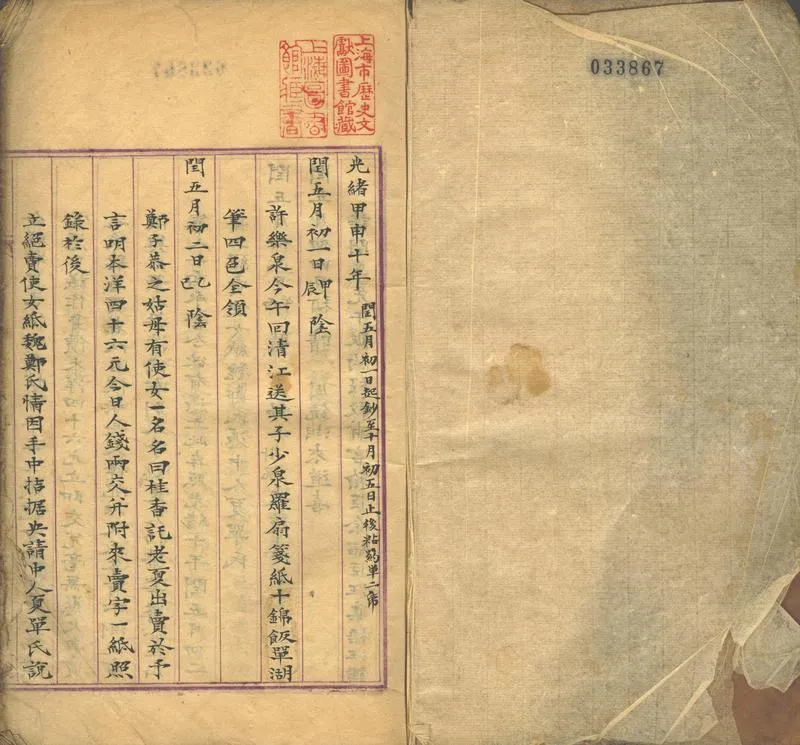 033867
上海市歷史文
獻圖書館藏
光緒甲申十年 閏五月初一日起鈔至十月初五日止後粘單二帋
閏五月初一日甲辰陰
許樂泉今午回清江送其子少泉羅扇箋紙十錦飯單湖
筆四色全領
閏五月初二日乙巳陰
鄭子恭之姑母有使女一名名曰桂香託老夏出賣於予
言明本洋四十六元今日人錢兩交并附來賣字一紙照
錄於後
立絕賣使女紙魏鄭氏情因手中拮据央請中人夏單氏說